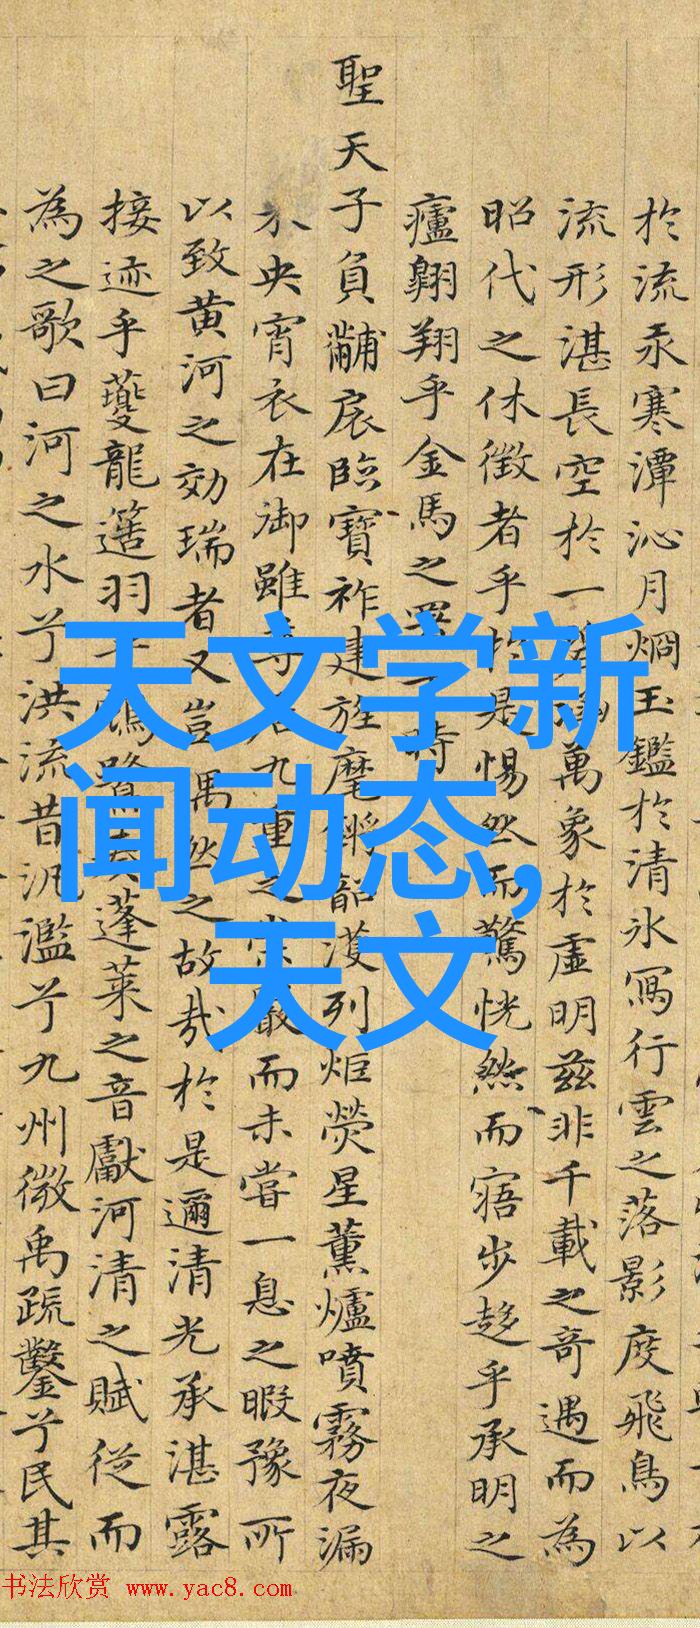 於流汞寒潭沁月烱玉鑑於清氷寫行雲之落影度飛鳥以
流形湛長空於一萬象於虛明茲非千載之奇遇而為
昭代之休徵者乎於是惕然而驚恍然而寤步趍乎承明之
廬翺翔乎金馬之署時
聖天子負黼扆臨寶祚建旌麾鏘韶濩列炬熒星薰爐噴霧夜漏
未央宵衣在御雖九重之嚴而未嘗一息之暇豫所
以致黃河之効瑞者又豈偶然之故哉於是邇清光承湛露
接迹乎夔龍簉羽鷺蓬萊之音獻河清之賦從而
為之歌曰河之水兮洪流昔汎濫兮九州微禹疏鑿兮民其
天文学新
闻动态,
天文
书法欣赏 www.yac8.com